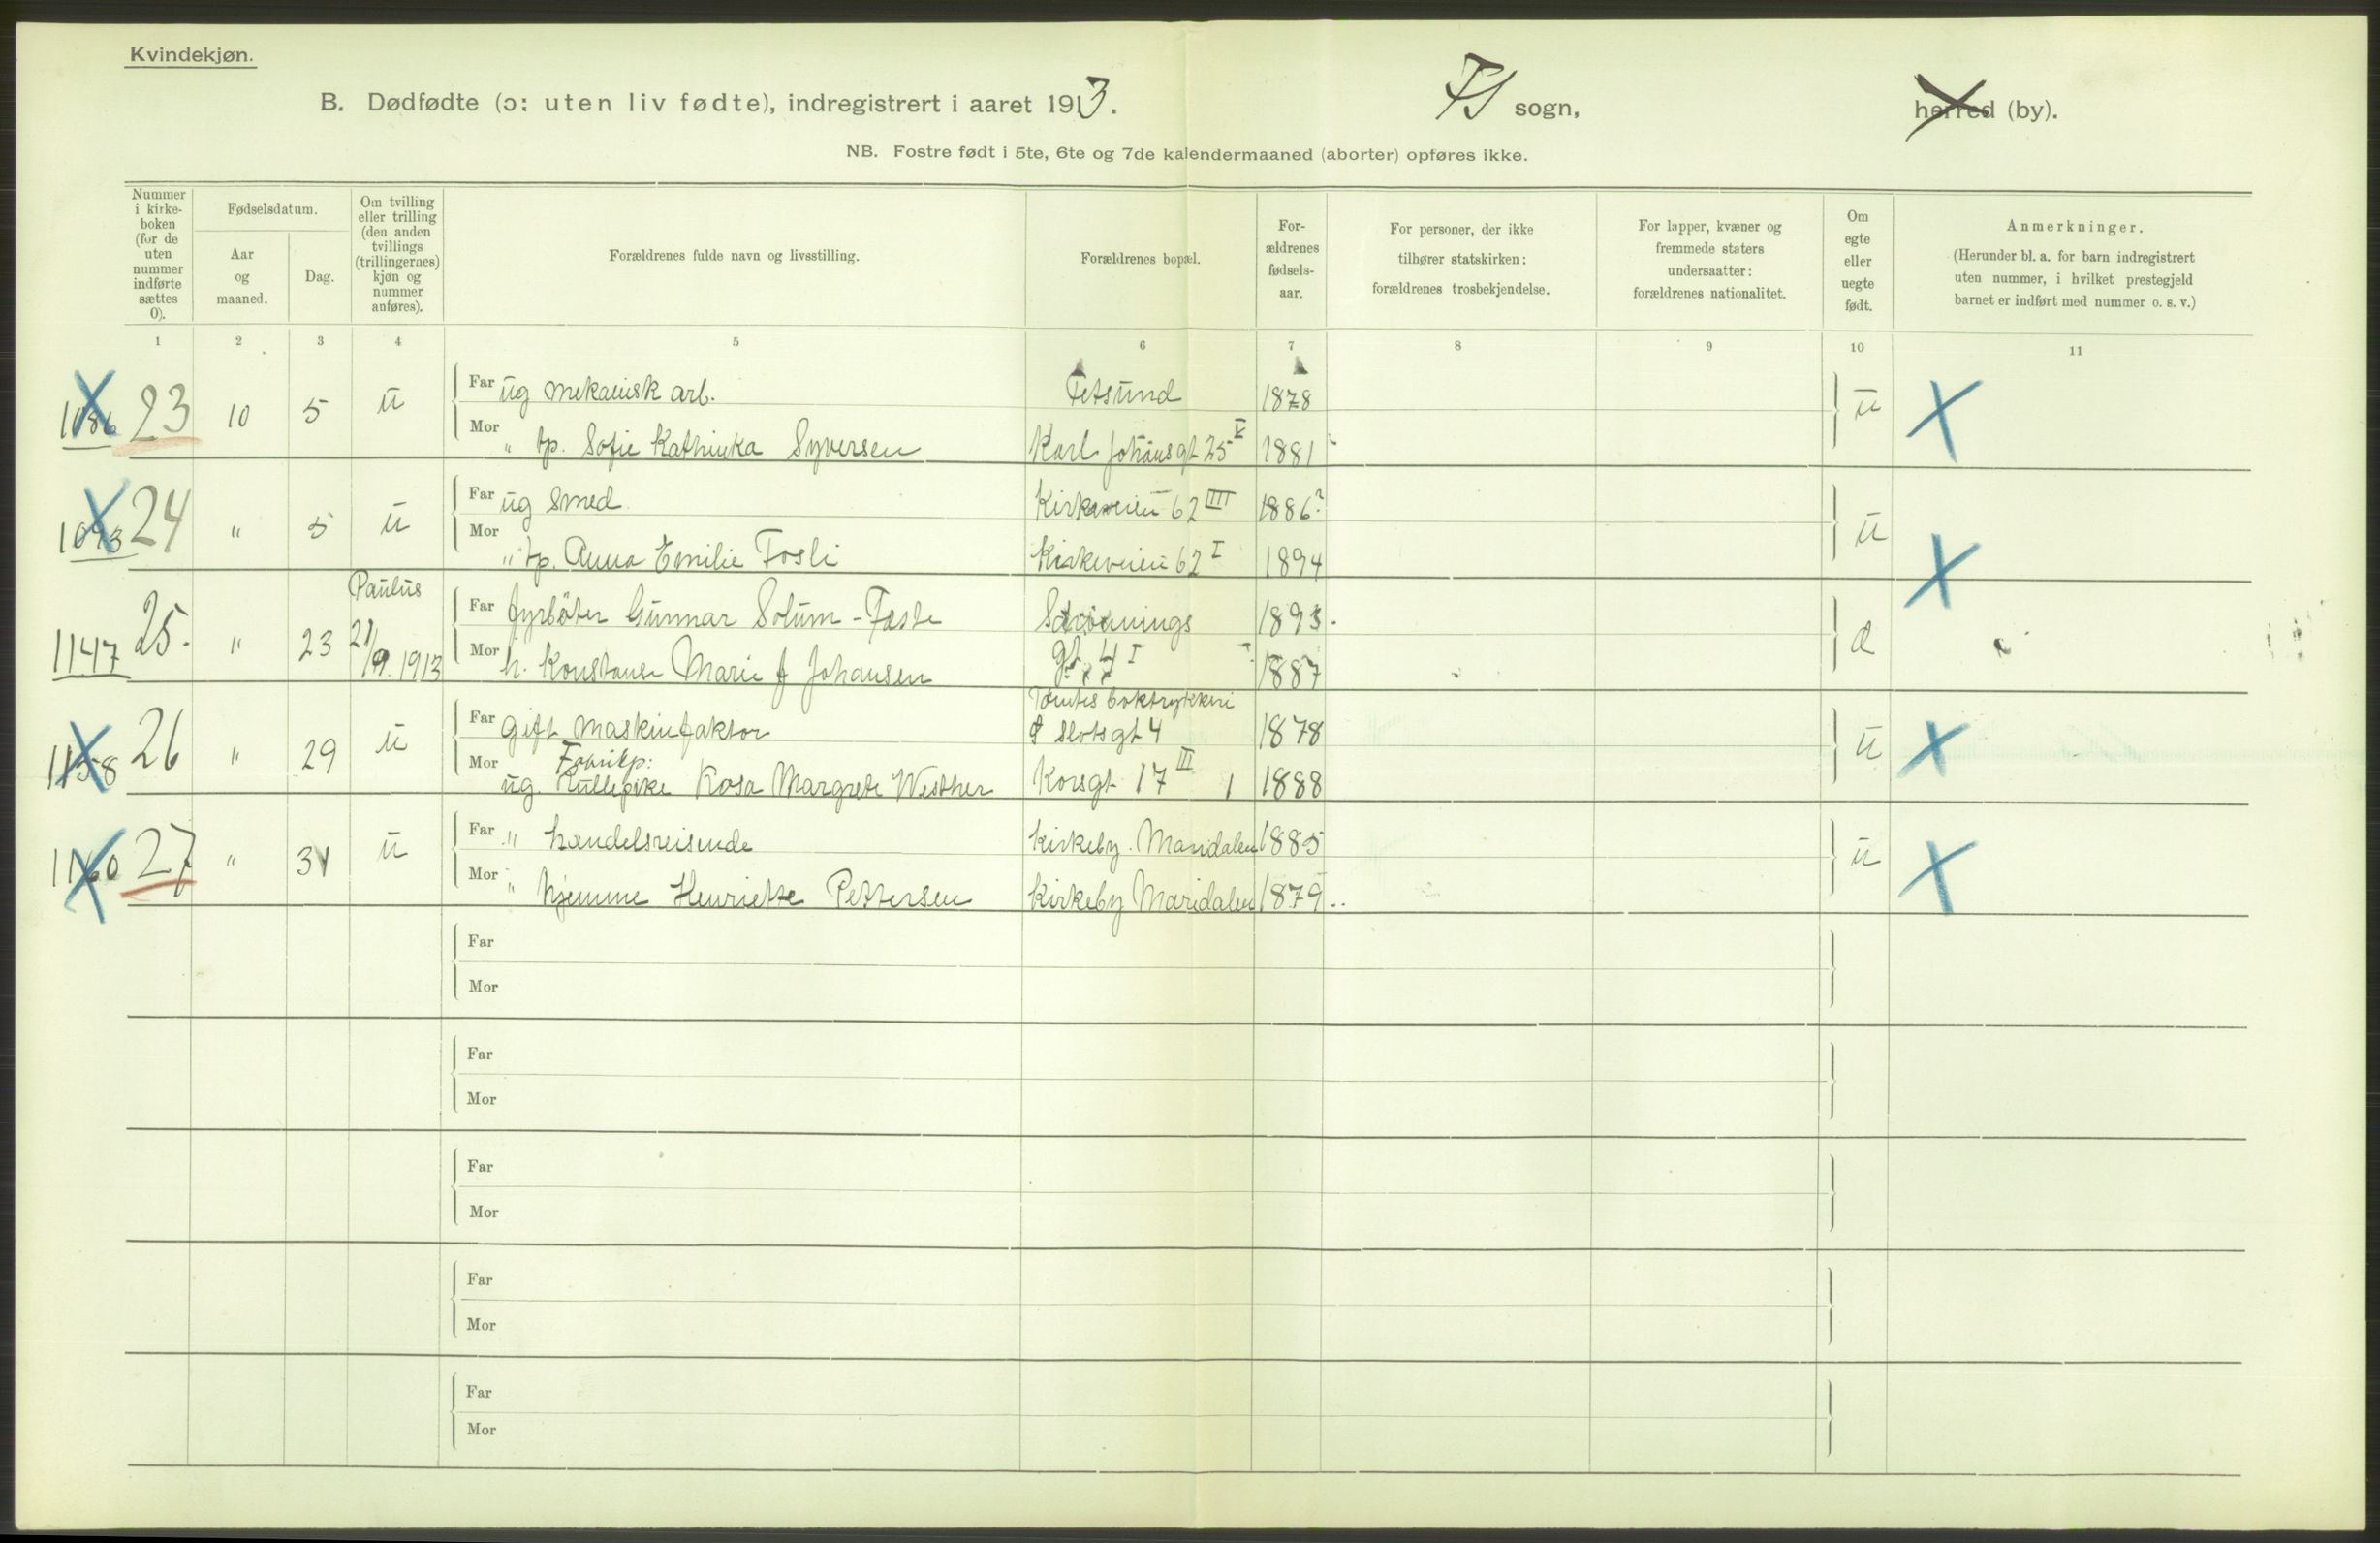 Kvindekjøn.
B. Dødfødte (ɔ: uten liv fødte), indregistrert i aaret 1913. FS sogn, herred (by).
NB. Fostre født i 5te, 6te og 7de kalendermaaned (aborter) opføres ikke.
Nummer i kirke-boken (for de uten nummer indførte sættes 0).
Fødselsdatum.
Aar og maaned.
Dag.
Om tvilling eller trilling (den anden tvillings (trillingernes) kjøn og nummer anføres).
Forældrenes fulde navn og livsstilling.
Forældrenes bopæl.
For-ældrenes fødsels-aar.
For personer, der ikke tilhører statskirken: forældrenes trosbekjendelse.
For lapper, kvæner og fremmede staters undersaatter: forældrenes nationalitet.
Om egte eller uegte født.
Anmerkninger.
(Herunder bl. a. for barn indregistrert uten nummer, i hvilket prestegjeld barnet er indført med nummer o. s. v.)
1 2 3 4 5 6 7 8 9 10 11
1086 23 10 5 u Far ug mekanisk arb. Fetsund 1878 u
Mor " tp. Sofie Kathinka Syversen Karl Johansgt 25 V 1881
1093 24 " 5 u Far ug smed Kirkeveien 62 IIII 1886? u
Mor " tp. Anna Emilie Fosli Kirkeveien 62 I 1894
Paulus
1147 25. " 23 21/9. 1913 Far fyrbøter Gunnar Solum - 1893. e
Mor h. Konstanse Marie f Johansen gt. 4 I 1887
Tømtes boktrykkeri
1158 26 " 29 u Far gift maskinfaktor Slotsgt 4 1878 u
Fabrikp:
Mor ug. Rullepike Rosa Margrete Westher Korsgt 17 III 1888
1160 27 " 31 u Far " handelsreisende Kirkeby Maridalen 1885 u
Mor " hjemme Henriette Pettersen Kirkeby Maridalen 1879
Far
Mor
Far
Mor
Far
Mor
Far
Mor
Far
Mor